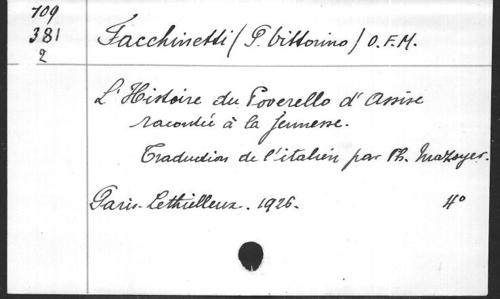 109
381
2
Facchinetti (P. Vittorino) O.F.M.
L'Histoire du Poverello d'Assise
racontée à la Jeunesse.
Traduction de l'italien par Ph. Mazoyer.
Paris - Lethielleux. 1926. 4°